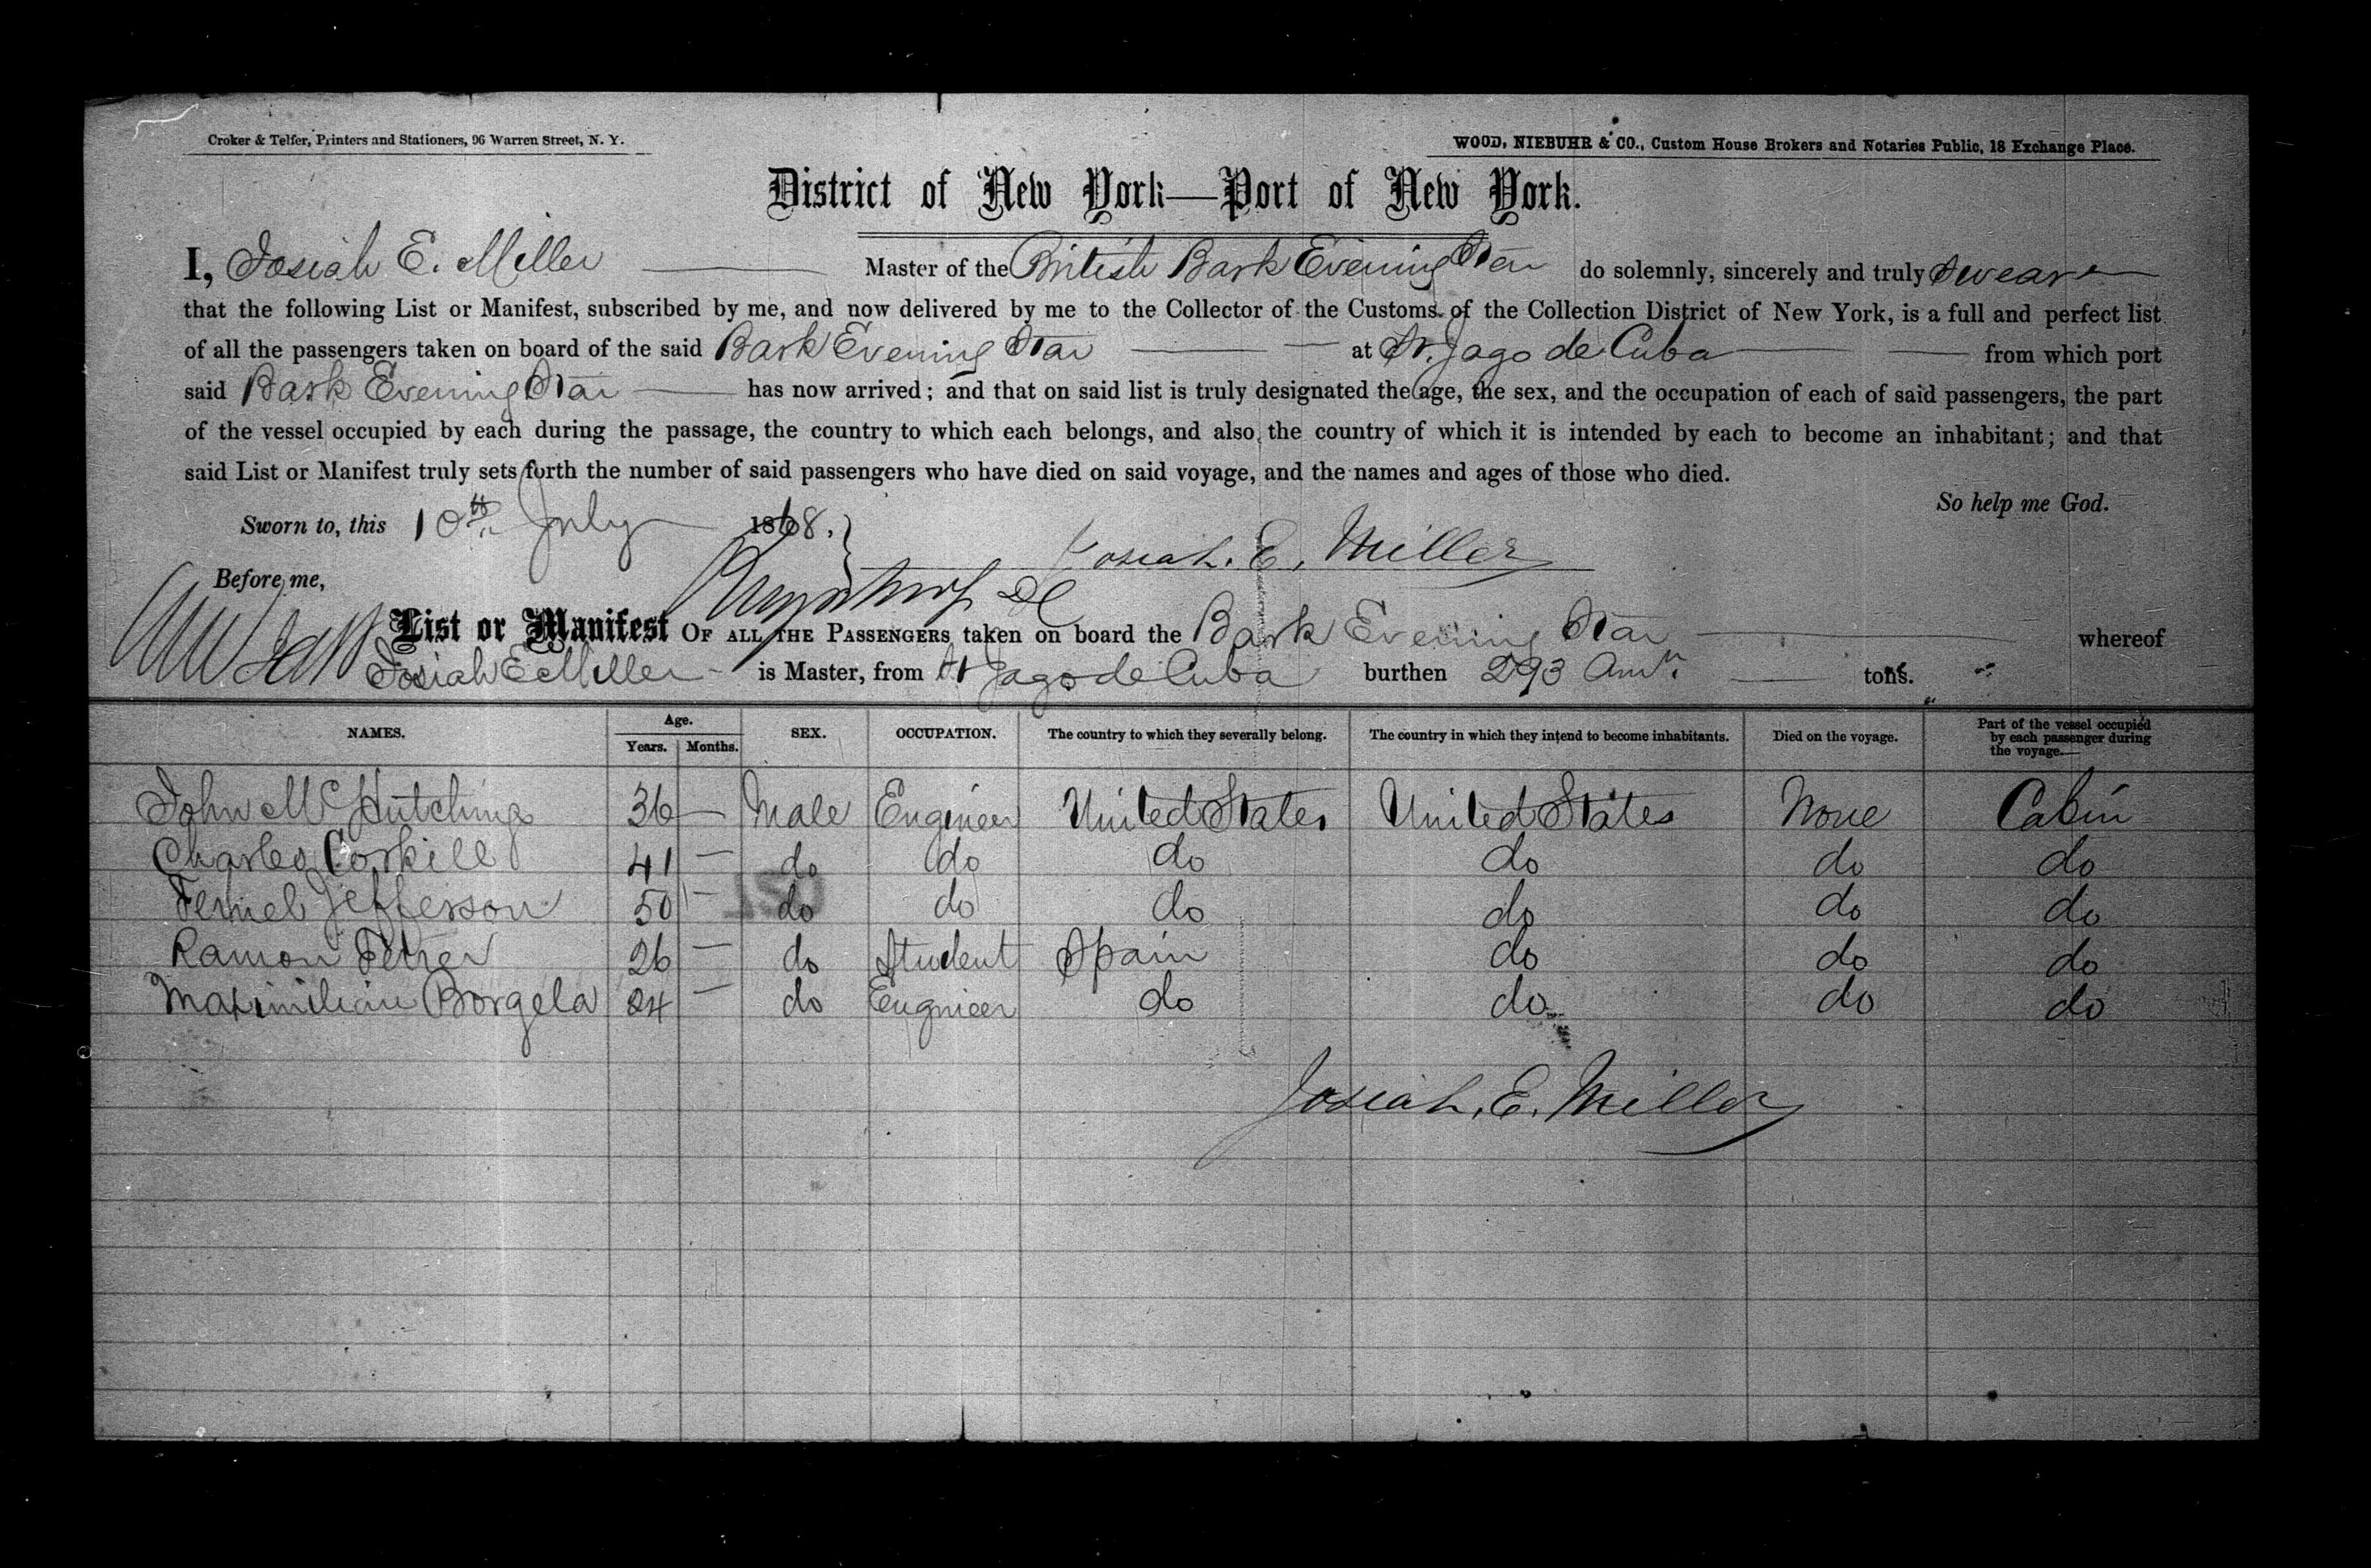 Croker & Telfer, Printers and Stationers, 96 Warren Street, N. Y.
WOOD, NIEBUHR & CO., Custom House Brokers and Notaries Public, 18 Exchange Place.
District of New York—Port of New York.
I, Josiah E. Miller Master of the British Bark Evening Star do solemnly, sincerely and truly swear
that the following List or Manifest, subscribed by me, and now delivered by me to the Collector of the Customs of the Collection District of New York, is a full and perfect list
of all the passengers taken on board of the said Bark Evening Star at St. Jago de Cuba from which port
said Bark Evening Star has now arrived; and that on said list is truly designated the age, the sex, and the occupation of each of said passengers, the part
of the vessel occupied by each during the passage, the country to which each belongs, and also the country of which it is intended by each to become an inhabitant; and that
said List or Manifest truly sets forth the number of said passengers who have died on said voyage, and the names and ages of those who died.
So help me God.
Sworn to, this 10th July 1868.
Josiah. E. Miller
Before me,
List or Manifest OF ALL THE PASSENGERS taken on board the Bark Evening Star whereof
Josiah E Miller is Master, from St Jago de Cuba burthen 293 tons.
NAMES. Age. Years. Months. SEX. OCCUPATION. The country to which they severally belong. The country in which they intend to become inhabitants. Died on the voyage. Part of the vessel occupied by each passenger during the voyage.
John Mc Hutching 36 — Male Engineer United States United States None Cabin
Charles Corkill 41 — do do do do do do
Jefferson 50 — do do do do do do
Ramon 26 — do Student Spain do do do
Maximilian Borgela 24 — do Engineer do do do do
Josiah. E. Miller